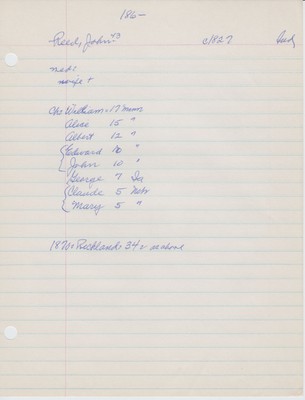 186-
Reed, John 43 c1827 Ind
ned:
wife +
Ch: William - 17 Minn
Alice 15 "
Albert 12 "
{Edward 10 "
{John 10 "
George 7 Ia
{Claude 5 Nebr
{Mary 5 "
1870: Richland: 34: as above